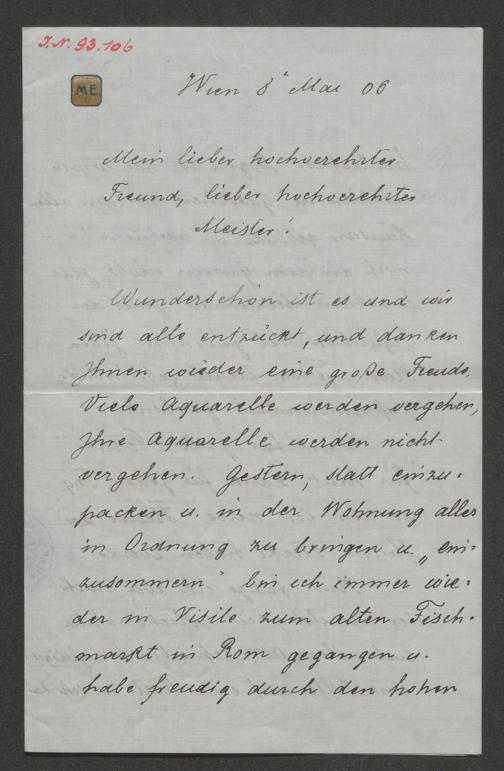 J.N. 93.106
ME
Wien 8" Mai 06
Mein lieber hochverehrter
Freund, lieber hochverehrter
Meister!
Wunderschön ist es und wir
sind alle entzückt, und danken
Ihnen wieder eine große Freude.
Viele Aquarelle werden vergehen,
Ihre Aquarelle werden nicht
vergehen. Gestern, statt einzu-
packen u. in der Wohnung alles
in Ordnung zu bringen u. „ein-
zusommern" bin ich immer wie-
der in Visite zum alten Fisch-
markt in Rom gegangen u.
habe freudig durch den hohen